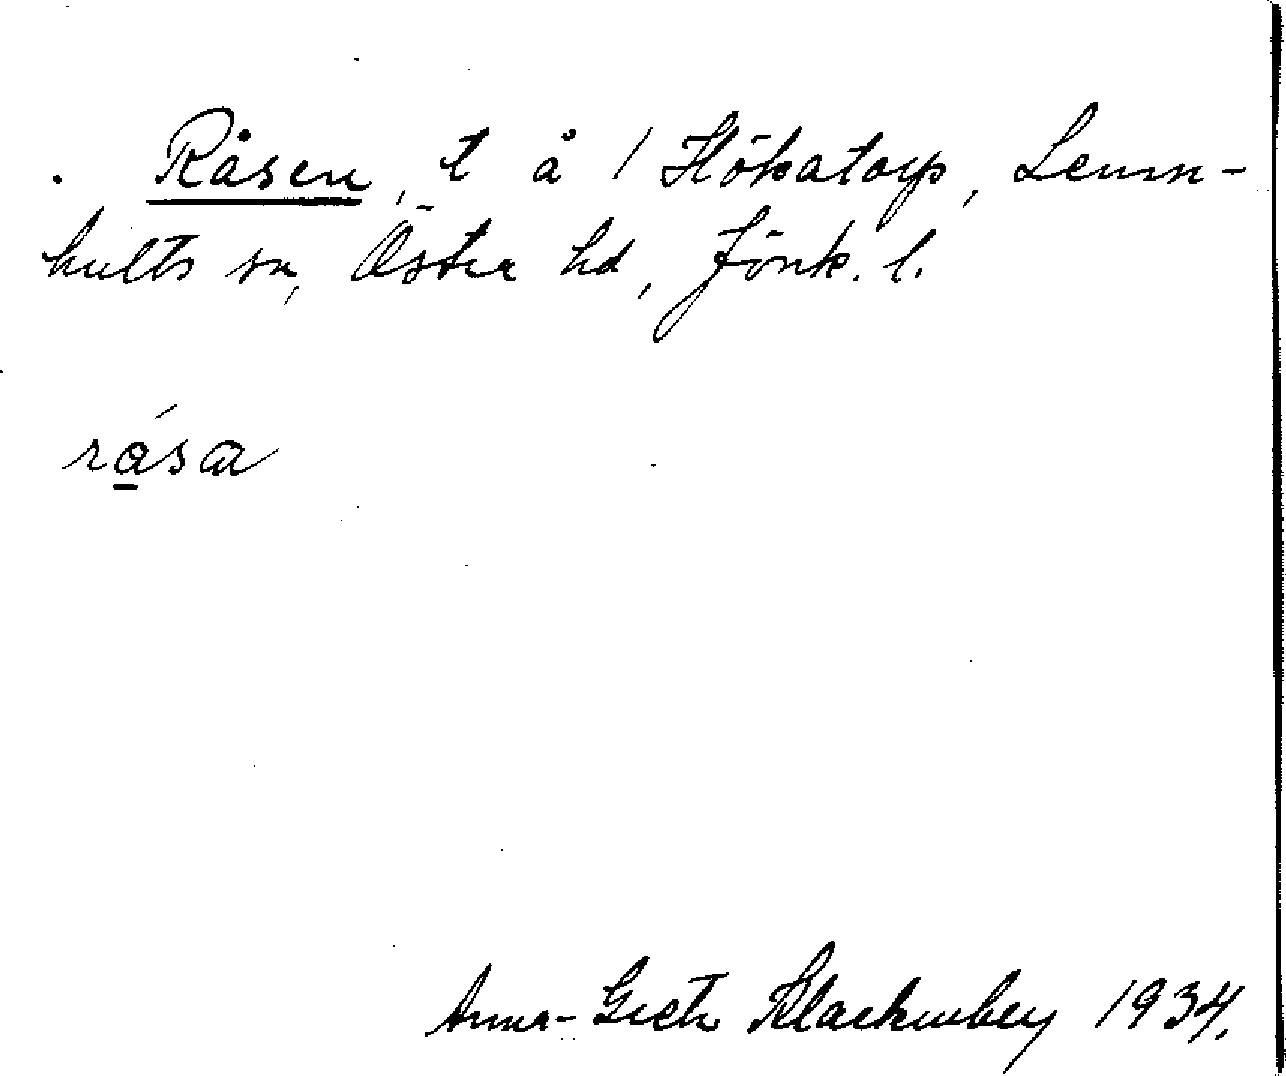 Råsen, t å 1 Hökatorp, Lemn-
hults sn, Östra hd, Jönk. l.
råsa
Anna-Greta Klackenberg 1934.